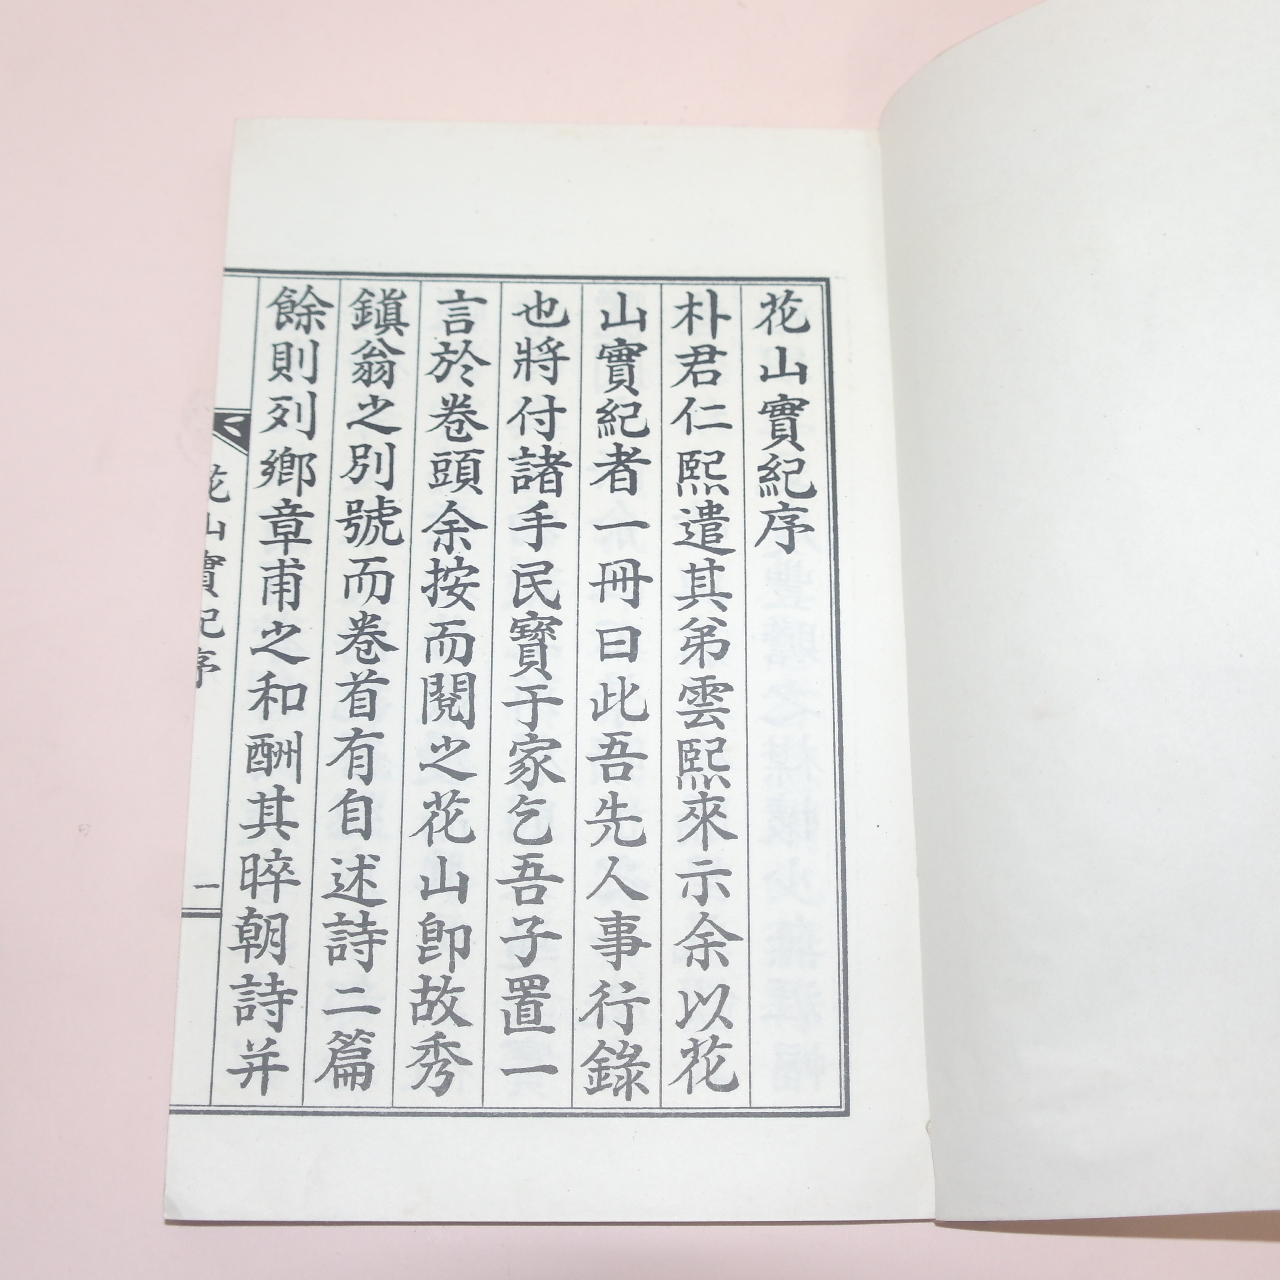 花山實紀序
朴君仁熙遣其弟雲熙來示余以花
山實紀者一冊曰此吾先人事行錄
也將付諸手民寶于家乞吾子置一
言於卷頭余按而閱之花山卽故秀
鎭翁之別號而卷首有自述詩二篇
餘則列鄕章甫之和酬其晬朝詩并
花山實紀序
一